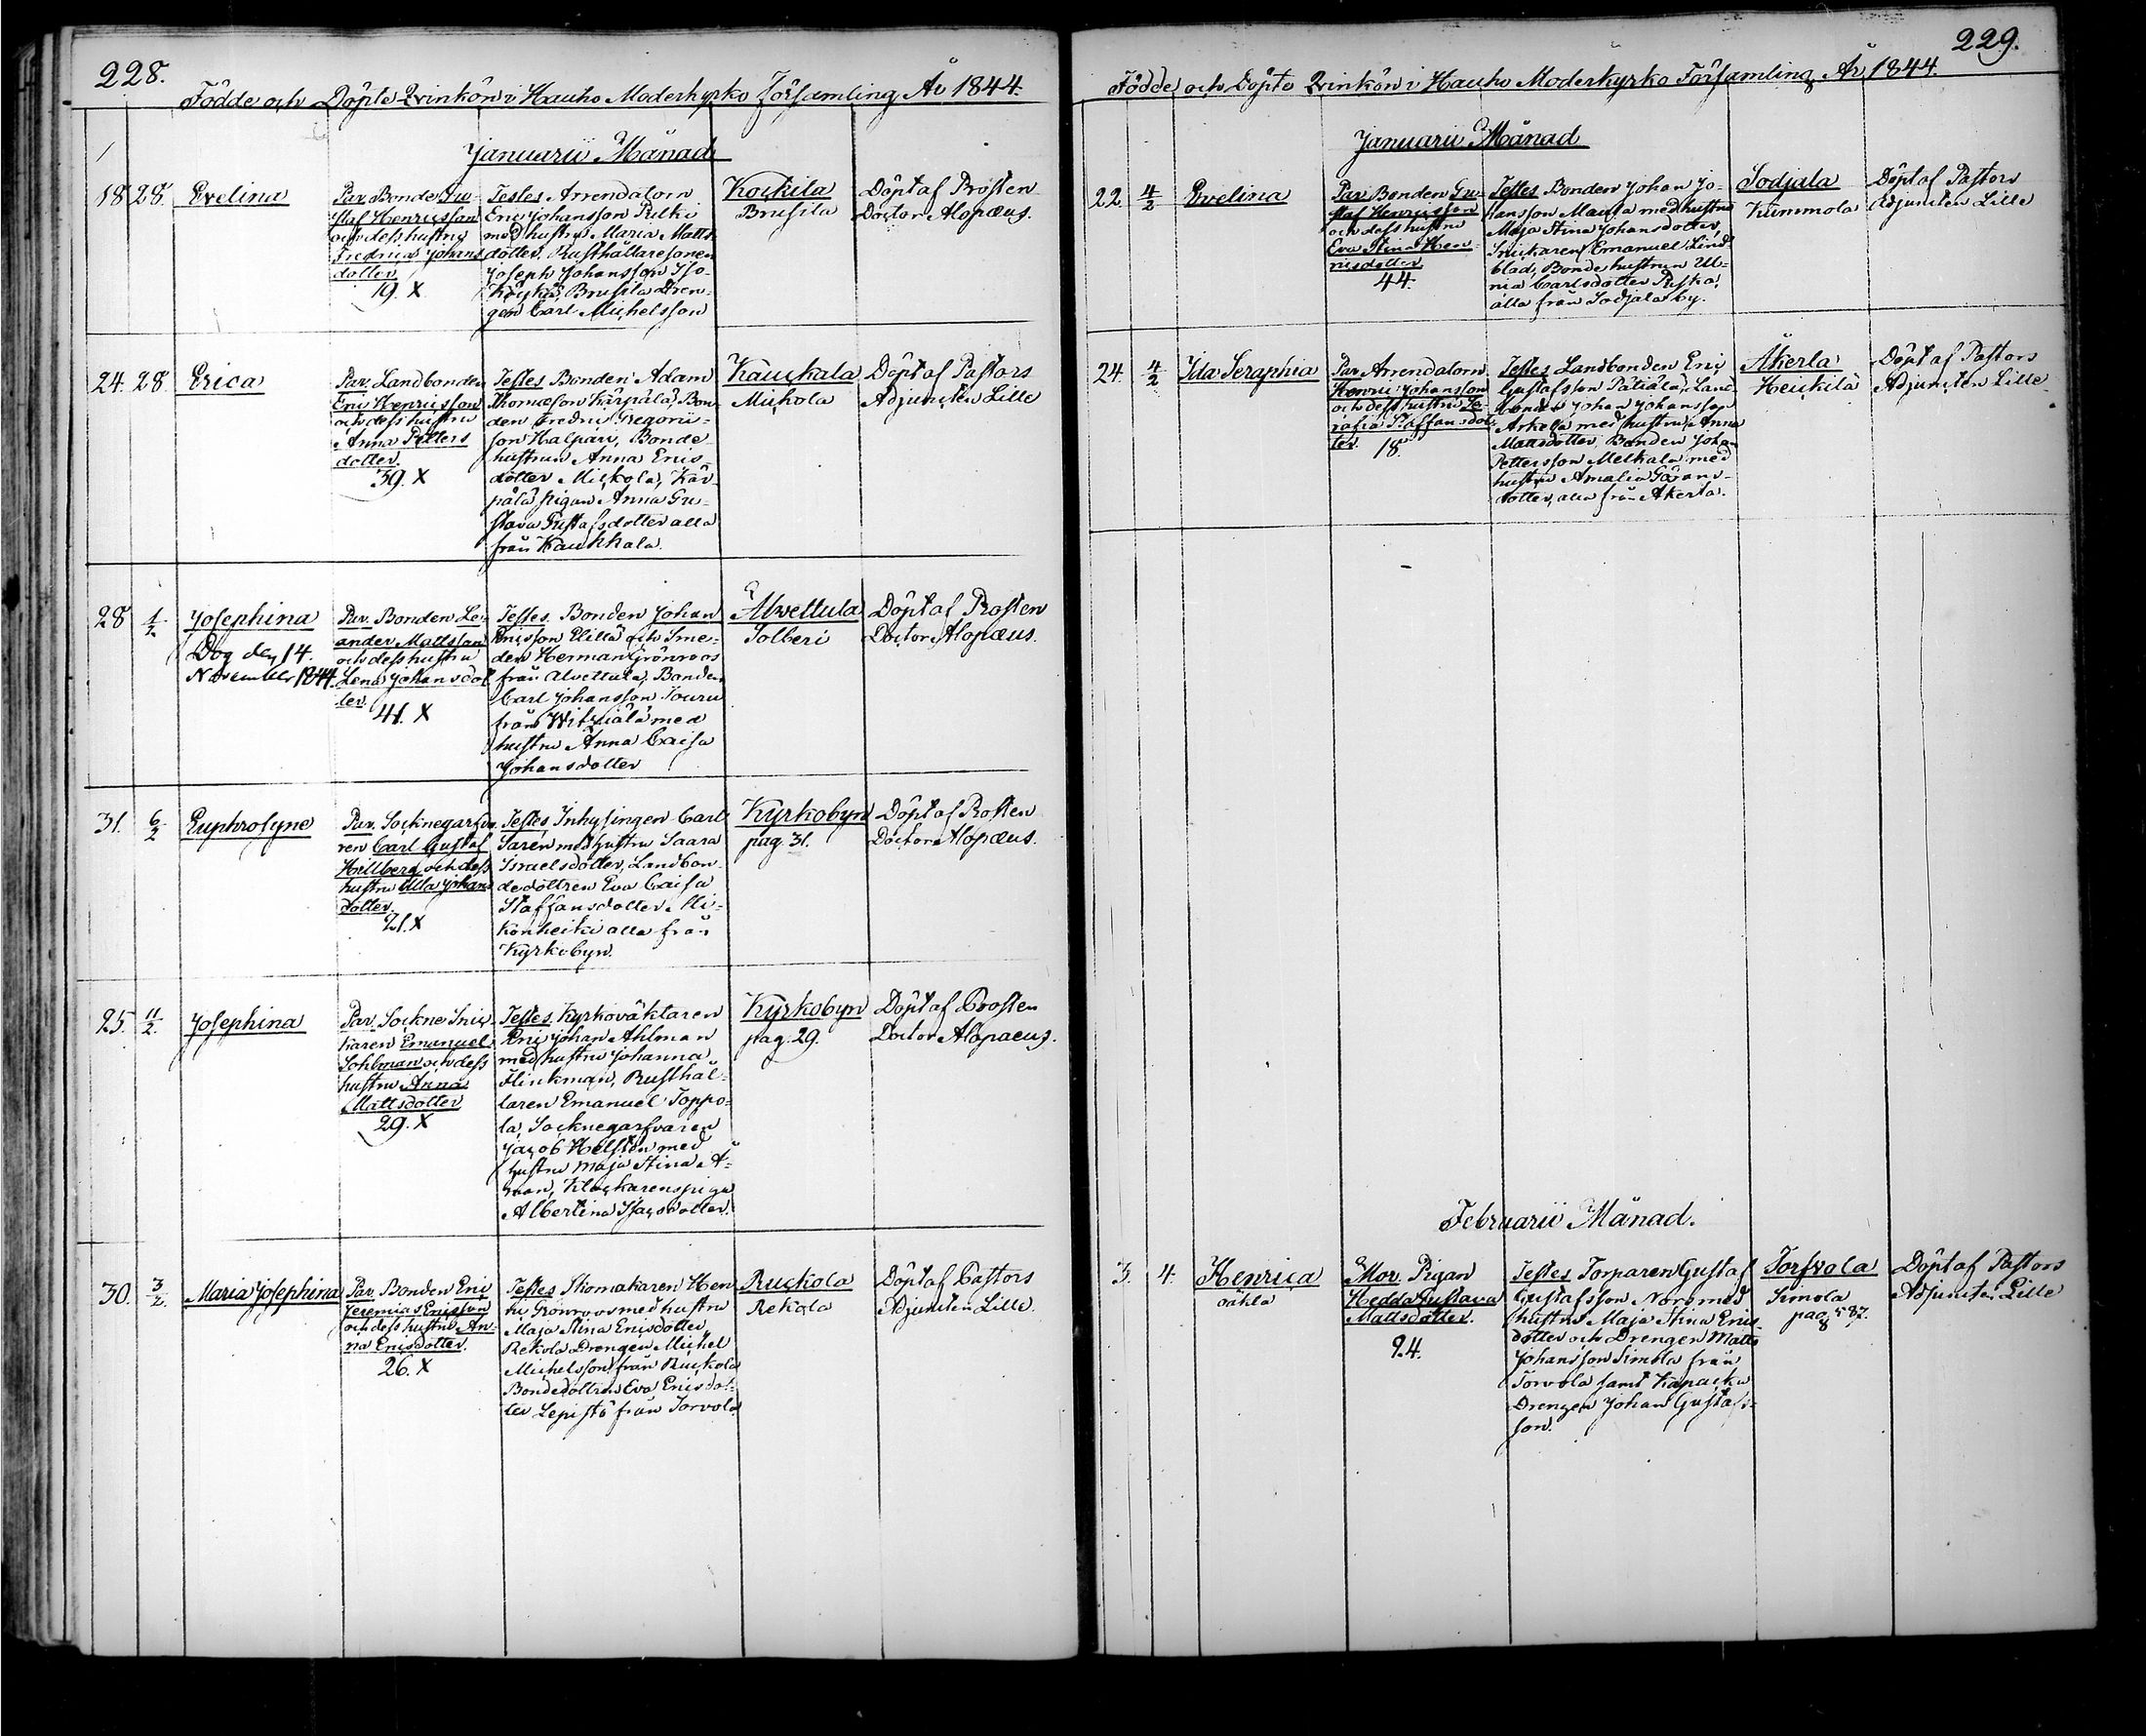 228.
Födde och Döpte Qvinkön i Hauho Moderkyrko Församling År 1844.
Januarii Månad
18 28. Evelina
Par. Bonde Gu-
staf Henricsson
och dess hustru
Fredrica Johans
dotter
19. X
Testes Arrendatorn
Eric Johansson Pilki
med hustru Maria Matts-
dotter, Rusthållaresonen
Joseph Johansson Iso-
Brusila Dren-
gen Carl Michelsson
Kockila
Brusila
Döpt af Prosten
Doctor Alopæus.
24. 28. Erica
Par. Landbonden
Eric Henricsson
och dess hustru
Anna Petters
dotter.
39. X
Testes Bonden Adam
Thomasson Kärpälä, Bon-
den Fredric Gregorii-
son Halpari, Bonde
hustrun Anna Erics
dotter Mickola, Kär-
pälä pigan Anna Gu-
stava Gustafsdotter alla
från Kaukkala.
Kauckala
Mickola
Döpt af Pastors
Adjuncten Lille
28 1/2 Josephina
Dog den 14.
November 1844.
Par. Bonden Le-
ander Mattsson
och dess hustru
Lena Johansdot
ter.
41. X
Testes. Bonden Johan
Ericsson Elillä och Sme-
den Herman Grönroos
från Alvettula, Bonden
Carl Johansson Jouru
från Witziälä med
hustru Anna Caisa
Johansdotter
Alvettula
Solberi
Döpt af Prosten
Doctor Alopæus.
31. 6/2 Euphrosyne
Par. Socknegarfva
ren Carl Gustaf
Hillberg och dess
hustru Ulla Johans
dotter.
21. X
Testes Inhysingen Carl
Saren med hustru Saara
Israelsdotter, Landbon-
dedottren Eva Caisa
Staffansdotter Mi-
konheiki alla från
Kyrkobyn.
Kyrkobyn
pag. 31.
Döpt af Prosten
Doctor Alopæus.
25. 11/2. Josephina
Par. Sockne Snic-
karen Emanuel
Sohlman och dess
hustru Anna
Mattsdotter
29. X
Testes Kyrkoväktaren
Eric Johan Ahlman
med hustru Johanna
Flinkman, Rusthål-
laren Emanuel Toppo-
la, Socknegarfvaren
Jacob Helsten med
hustru Maja Stina A-
man, Klockarenspiga
Albertina Isacsdotter.
Kyrkobyn
pag. 29.
Döpt af Prosten
Doctor Alopaeus.
30. 3/2. Maria Josephina
Par. Bonden Eric
Jeremias Ericsson
och dess hustru An-
na Ericsdotter.
26. X
Testes Skomakaren Hen
ric Grönroos med hustru
Maja Stina Ericsdotter,
Rekola Drengen Michel
Michelsson från Ruckola
Bondedottren Eva Ericsdot-
ter Lepistö från Torvola
Ruckola
Rekola
Döpt af Pastors
Adjuncten Lille.
229.
Födde och Döpte Qvinkön i Hauho Moderkyrko Församling År 1844.
Januarii Månad
22. 4/2 Evelina
Par. Bonden Gu-
staf Henricsson
och dess hustru
Eva Stina Hen-
ricsdotter
44.
Testes Bonden Johan Jo-
hansson Maula med hustru
Maja Stina Johansdotter,
Snickaren Emanuel Lind-
blad, Bonde hustrun Ul-
rica Carlsdotter Piska,
alla från Sodjala by.
Sodjala
Kummola
Döpt af Pastors
Adjuncten Lille
24. 4/2 Ida Seraphia
Par. Arrendatorn
Henric Johansson
och dess hustru Se-
rafia Staffansdot-
ter. 18.
Testes Landbonden Eric
Gustafsson Patiala, Land
bonden Johan Johansson
Arkela med hustru Anna
Mattsdotter, Bonden Johan
Pettersson Melkala med
hustru Amalia Görans-
dotter, alla från Åkerla.
Åkerla
Heickilä
Döpt af Pastors
Adjuncten Lille
Februarii Månad.
3. 4. Henrica
oäkta
Mor. Pigan
Hedda Gustava
Mattsdotter.
24.
Testes Torparen Gustaf
Gustafsson Noro med
hustru Maja Stina Erics-
dotter och Drengen Matts
Johansson Simola från
Torvola samt Kapacku
Drengen Johan Gustafs-
son.
Torfvola
Simola
pag. 587.
Döpt af Pastors
Adjuncten Lille